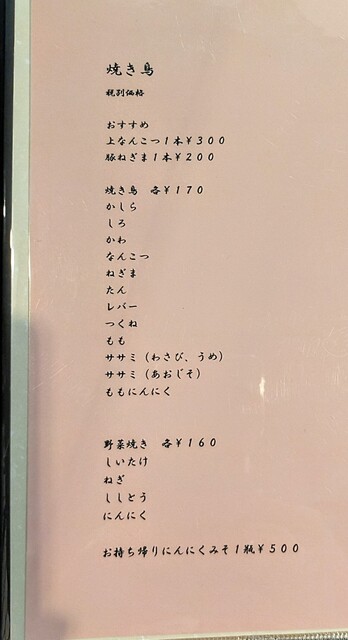 焼き鳥
税別価格
おすすめ
上なんこつ1本¥300
豚ねぎま1本¥200
焼き鳥　各¥170
かしら
しろ
かわ
なんこつ
ねぎま
たん
レバー
つくね
もも
ササミ（わさび、うめ）
ササミ（あおじそ）
ももにんにく
野菜焼き　各¥160
しいたけ
ねぎ
ししとう
にんにく
お持ち帰りにんにくみそ1瓶¥500